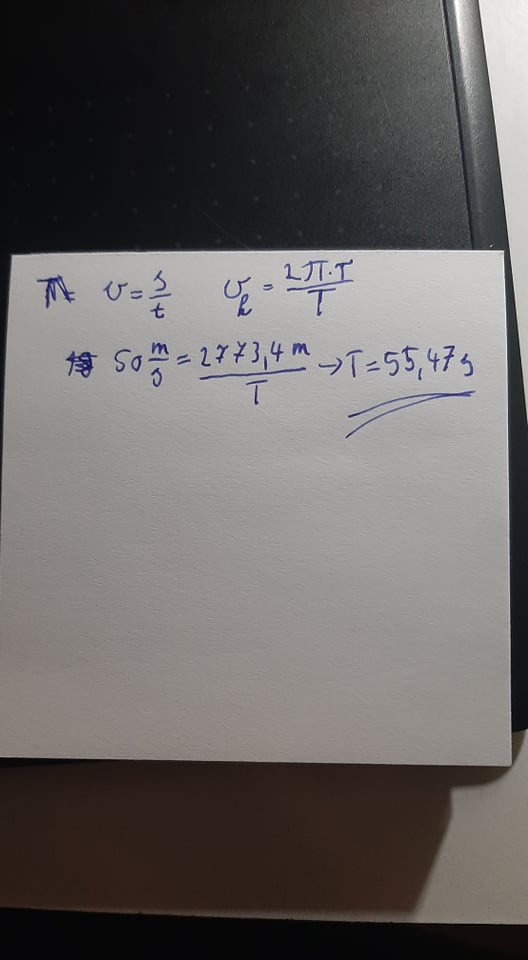 v = s/t v_k = 2π·r/T
50 m/s = 2773,4 m/T → T = 55,47 s